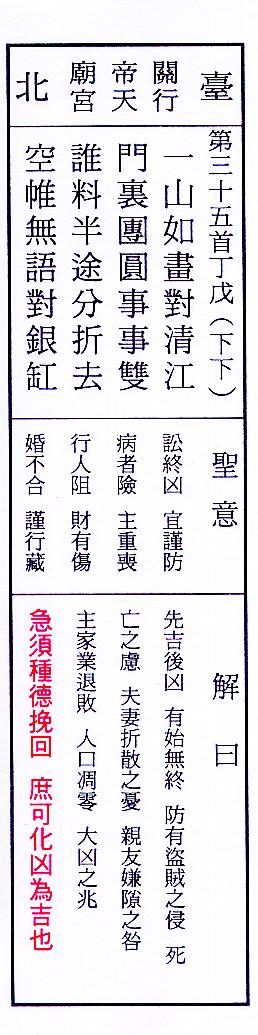 臺
關行
帝天
廟宮
北
第三十五首丁戊(下下)
一山如畫對清江
門裏團圓事事雙
誰料半途分折去
空帷無語對銀缸
聖意
訟終凶 宜謹防
病者險 主重喪
行人阻 財有傷
婚不合 謹行藏
解曰
先吉後凶 有始無終 防有盜賊之侵 死
亡之慮 夫妻折散之憂 親友嫌隙之咎
主家業退敗 人口凋零 大凶之兆
急須種德挽回 庶可化凶為吉也